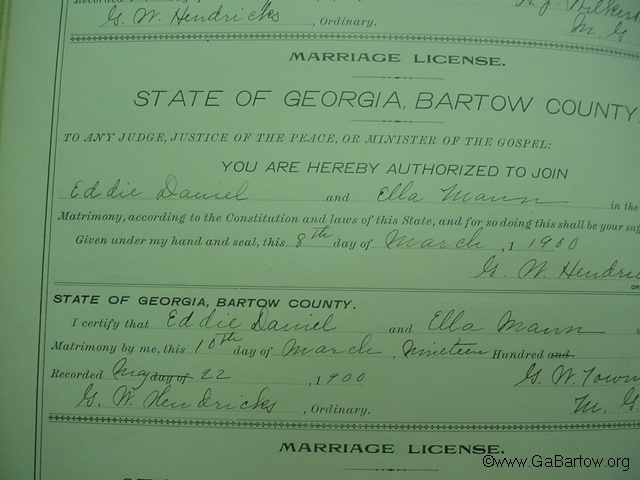 Recorded
G. W. Hendricks, Ordinary. M. G.
MARRIAGE LICENSE.
STATE OF GEORGIA, BARTOW COUNTY
TO ANY JUDGE, JUSTICE OF THE PEACE, OR MINISTER OF THE GOSPEL:
YOU ARE HEREBY AUTHORIZED TO JOIN
Eddie Daniel and Ella Mann in the
Matrimony, according to the Constitution and laws of this State, and for so doing this shall be your
Given under my hand and seal, this 8th day of March, 1 1900
G. W. Hendric
STATE OF GEORGIA, BARTOW COUNTY.
I certify that Eddie Daniel and Ella Mann
Matrimony by me, this 10th day of March, Nineteen Hundred and
Recorded May day of 22, 1900 G. W. Town
G. W. Hendricks, Ordinary. M. G.
MARRIAGE LICENSE.
©www.GaBartow.org